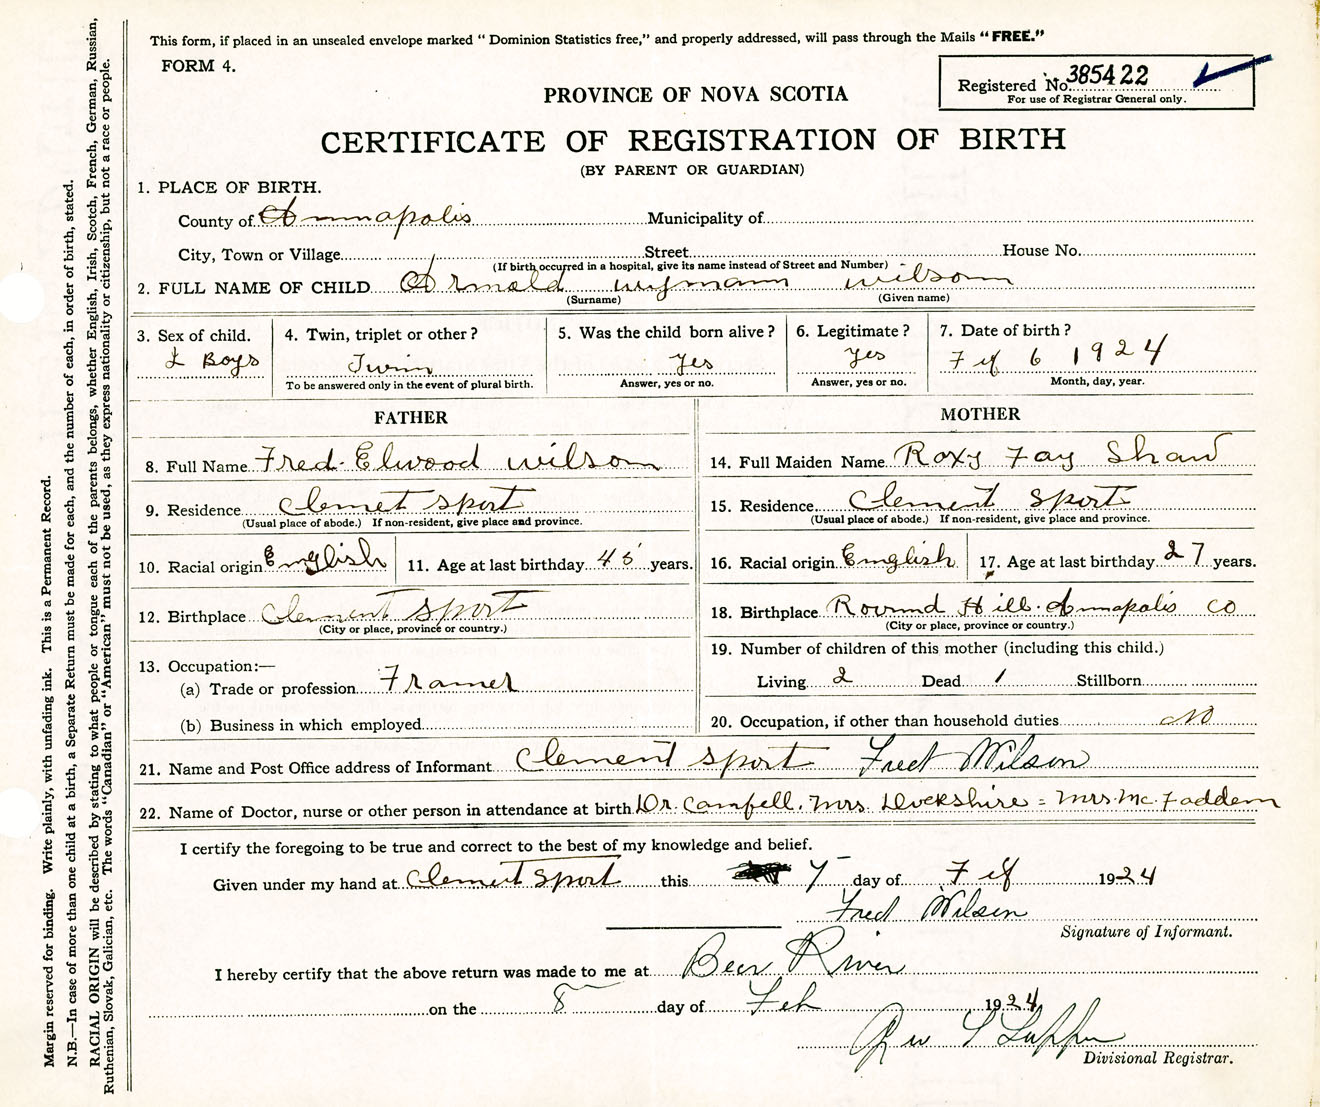 This form, if placed in an unsealed envelope marked " Dominion Statistics free," and properly addressed, will pass through the Mails "FREE."
FORM 4.
Registered No. 385422
For use of Registrar General only.
PROVINCE OF NOVA SCOTIA
CERTIFICATE OF REGISTRATION OF BIRTH
(BY PARENT OR GUARDIAN)
1. PLACE OF BIRTH.
County of Annapolis Municipality of
City, Town or Village Street House No.
(If birth occurred in a hospital, give its name instead of Street and Number)
2. FULL NAME OF CHILD Arnold wymann wilson
(Surname) (Given name)
3. Sex of child. 4. Twin, triplet or other? 5. Was the child born alive? 6. Legitimate? 7. Date of birth?
Boys Twin Yes Yes 6 1924
To be answered only in the event of plural birth. Answer, yes or no. Answer, yes or no. Month, day, year.
FATHER MOTHER
8. Full Name Fred Elwood wilson 14. Full Maiden Name Roxy Fay Shaw
9. Residence Clemet sport 15. Residence Clement sport
(Usual place of abode.) If non-resident, give place and province. (Usual place of abode.) If non-resident, give place and province.
10. Racial origin English 11. Age at last birthday 45 years. 16. Racial origin English 17. Age at last birthday 27 years.
12. Birthplace Clement sport 18. Birthplace Round Hill Annapolis CO
(City or place, province or country.) (City or place, province or country.)
13. Occupation:— 19. Number of children of this mother (including this child.)
(a) Trade or profession Framer Living 2 Dead 1 Stillborn
(b) Business in which employed 20. Occupation, if other than household duties No
21. Name and Post Office address of Informant Clement sport Fred Wilson
22. Name of Doctor, nurse or other person in attendance at birth Dr. Camfell. Mrs. = Mrs. Mc. Faddem
I certify the foregoing to be true and correct to the best of my knowledge and belief.
Given under my hand at Clement sport this 7 day of 1924
Fred Wilson
Signature of Informant.
I hereby certify that the above return was made to me at Bear River
on the 8 day of Feb 1924
Divisional Registrar.
Margin reserved for binding. Write plainly, with unfading ink. This is a Permanent Record.
N.B.—In case of more than one child at a birth, a Separate Return must be made for each, and the number of each, in order of birth, stated.
RACIAL ORIGIN will be described by stating to what people or tongue each of the parents belongs, whether English, Irish, Scotch, French, German, Russian,
Ruthenian, Slovak, Galician, etc. The words "Canadian" or "American" must not be used, as they express nationality or citizenship, but not a race or people.